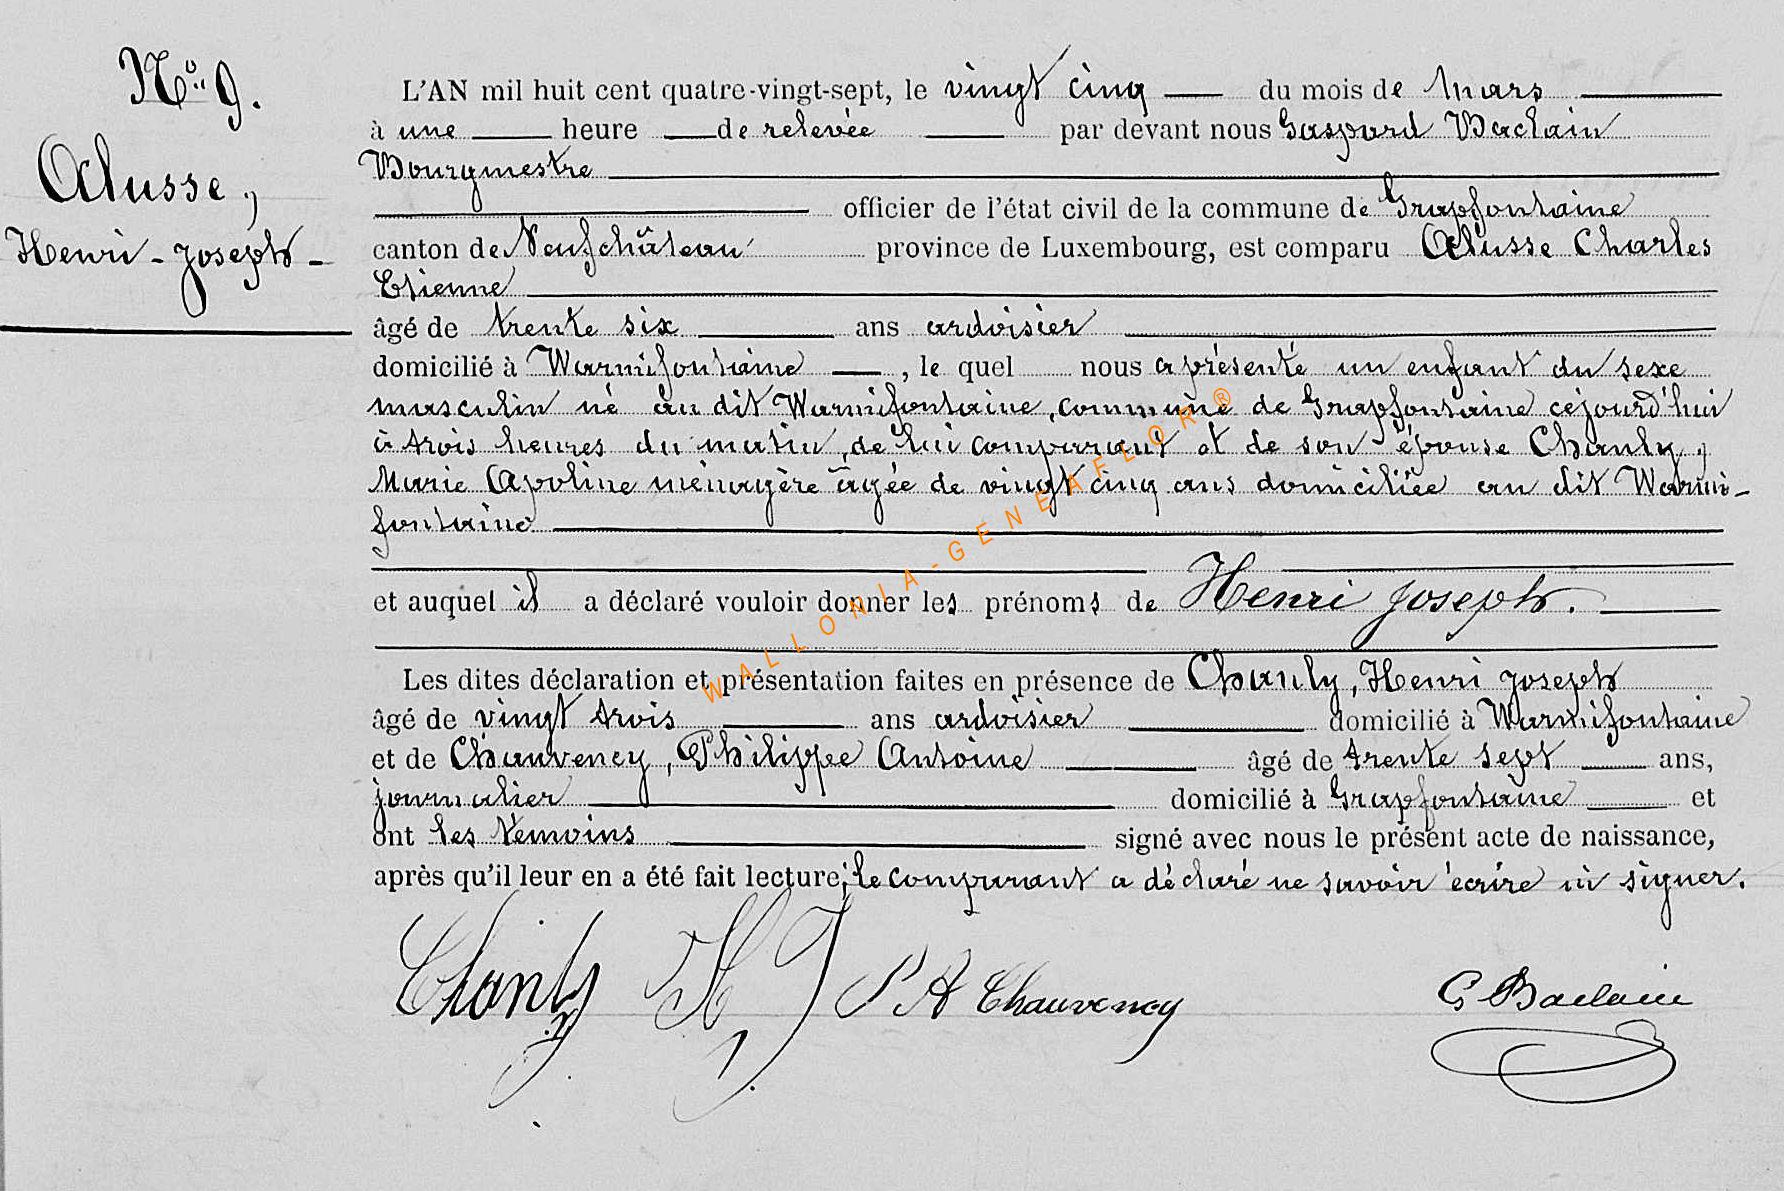 N° 9.
Alusse,
Henri-Joseph-
L'AN mil huit cent quatre-vingt-sept, le vingt cinq du mois de Mars
à une heure de relevée par devant nous Gaspard Baclain
Bourgmestre
officier de l'état civil de la commune de Grapfontaine
canton de Neufchâteau province de Luxembourg, est comparu Alusse Charles
Etienne
âgé de trente six ans ardoisier
domicilié à Warmifontaine, le quel nous a présenté un enfant du sexe
masculin né au dit Warmifontaine, commune de Grapfontaine cejourd'hui
à trois heures du matin, de lui comparant et de son épouse Chanly,
Marie Apoline ménagère âgée de vingt cinq ans domiciliée au dit Warmi-
fontaine
et auquel il a déclaré vouloir donner les prénoms de Henri Joseph.
Les dites déclaration et présentation faites en présence de Chanly, Henri Joseph
âgé de vingt trois ans ardoisier domicilié à Warmifontaine
et de Chauvency, Philippe Antoine âgé de trente sept ans,
journalier domicilié à Grapfontaine et
ont les témoins signé avec nous le présent acte de naissance,
après qu'il leur en a été fait lecture; le comparant a déclaré ne savoir écrire ni signer.
Chanly H J P A Chauvency G Baclain
WALLONIA-GENEAFLOR®